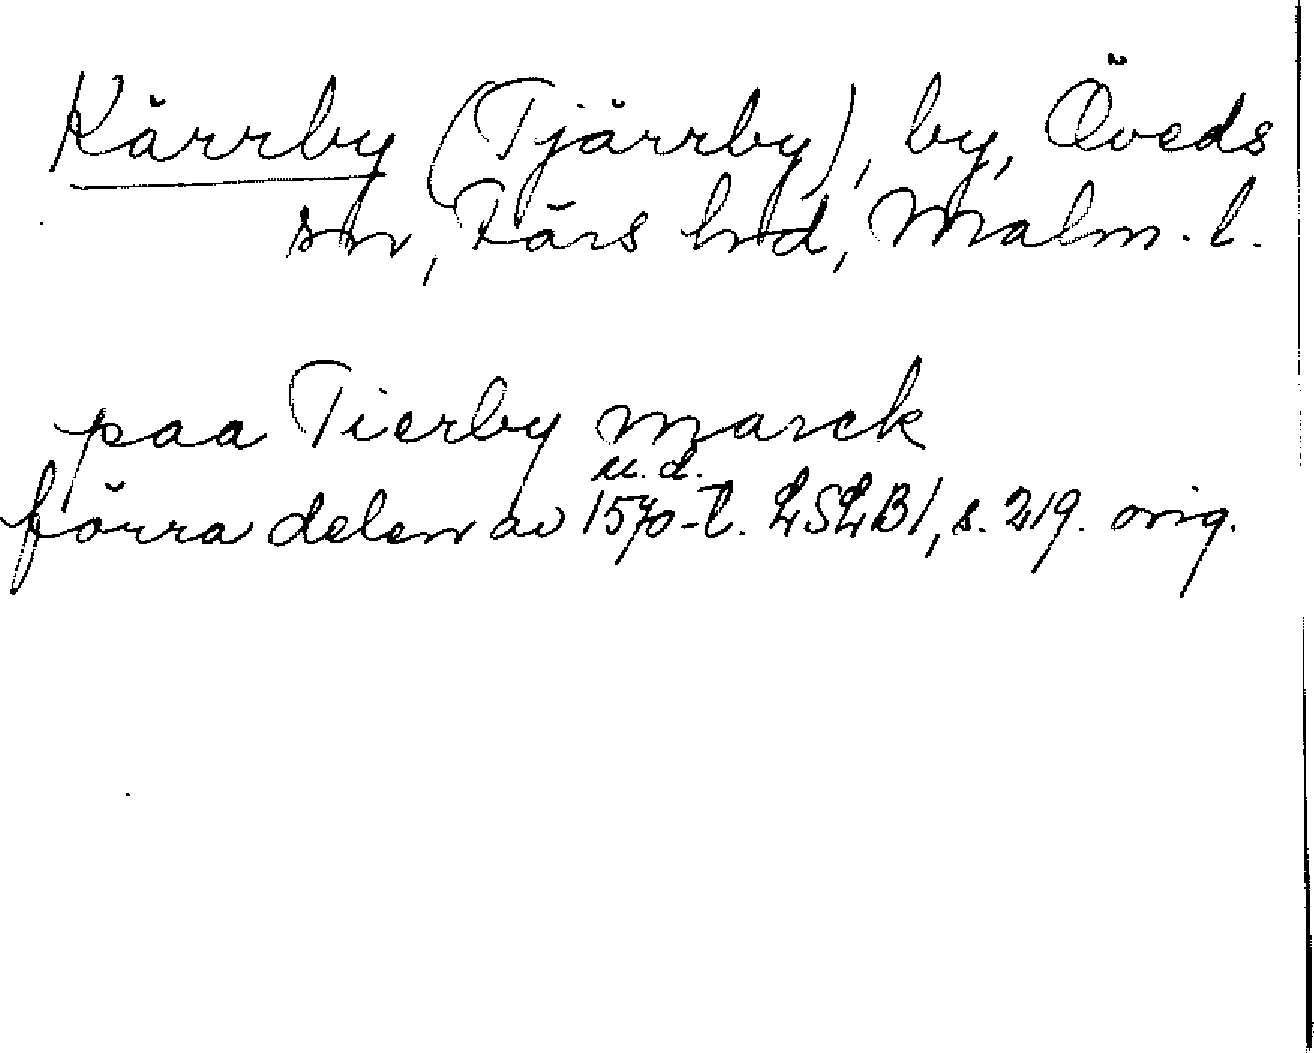 Kärrby (Tjärrby), by, Öveds
sn, Färs hrd, Malm. l.
paa Tierby marck
u. d.
förra delen av 1570-t. LSLB1, s. 219. orig.